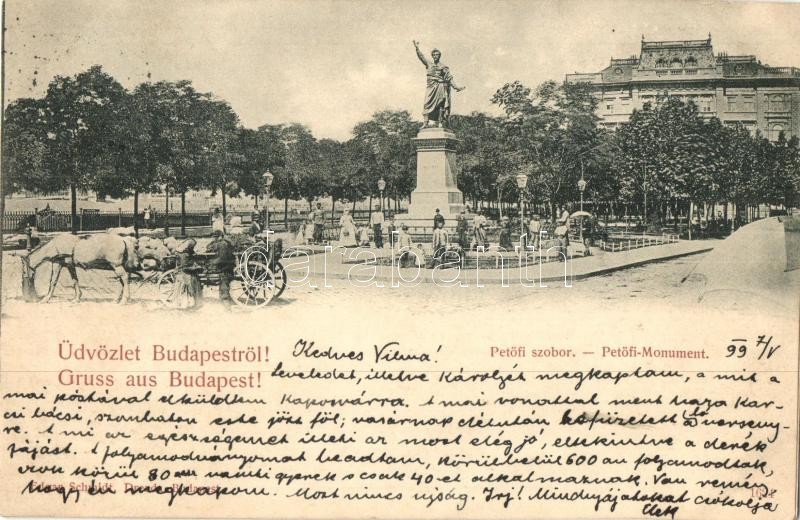 Üdvözlet Budapestről!
Gruss aus Budapest!
Petőfi szobor. — Petőfi-Monument.
99 7/V
Kedves Vilma!
Leveledet, illetve Károlyét megkaptam, a mit a
mai postával elküldtem Kaposvárra. A mai vonattal ment haza Kar-
csi bácsi, szombaton este jött föl; vasárnap délután kifizetett a lóverseny-
re. A mi az egészségemet illeti az most elég jó, eltekintve a derék
fájást. A folyamodványomat beadtam, körülbelül 600-an folyamodtak,
azok körül 80-an valami gyerek s csak 40-et alkalmaznak. Van remény,
hogy én megkapom. Most nincs ujság. Irj! Mindnyájatokat csókolja
Elek
Edgar Schmidt, Dresden-Budapest
darabanth